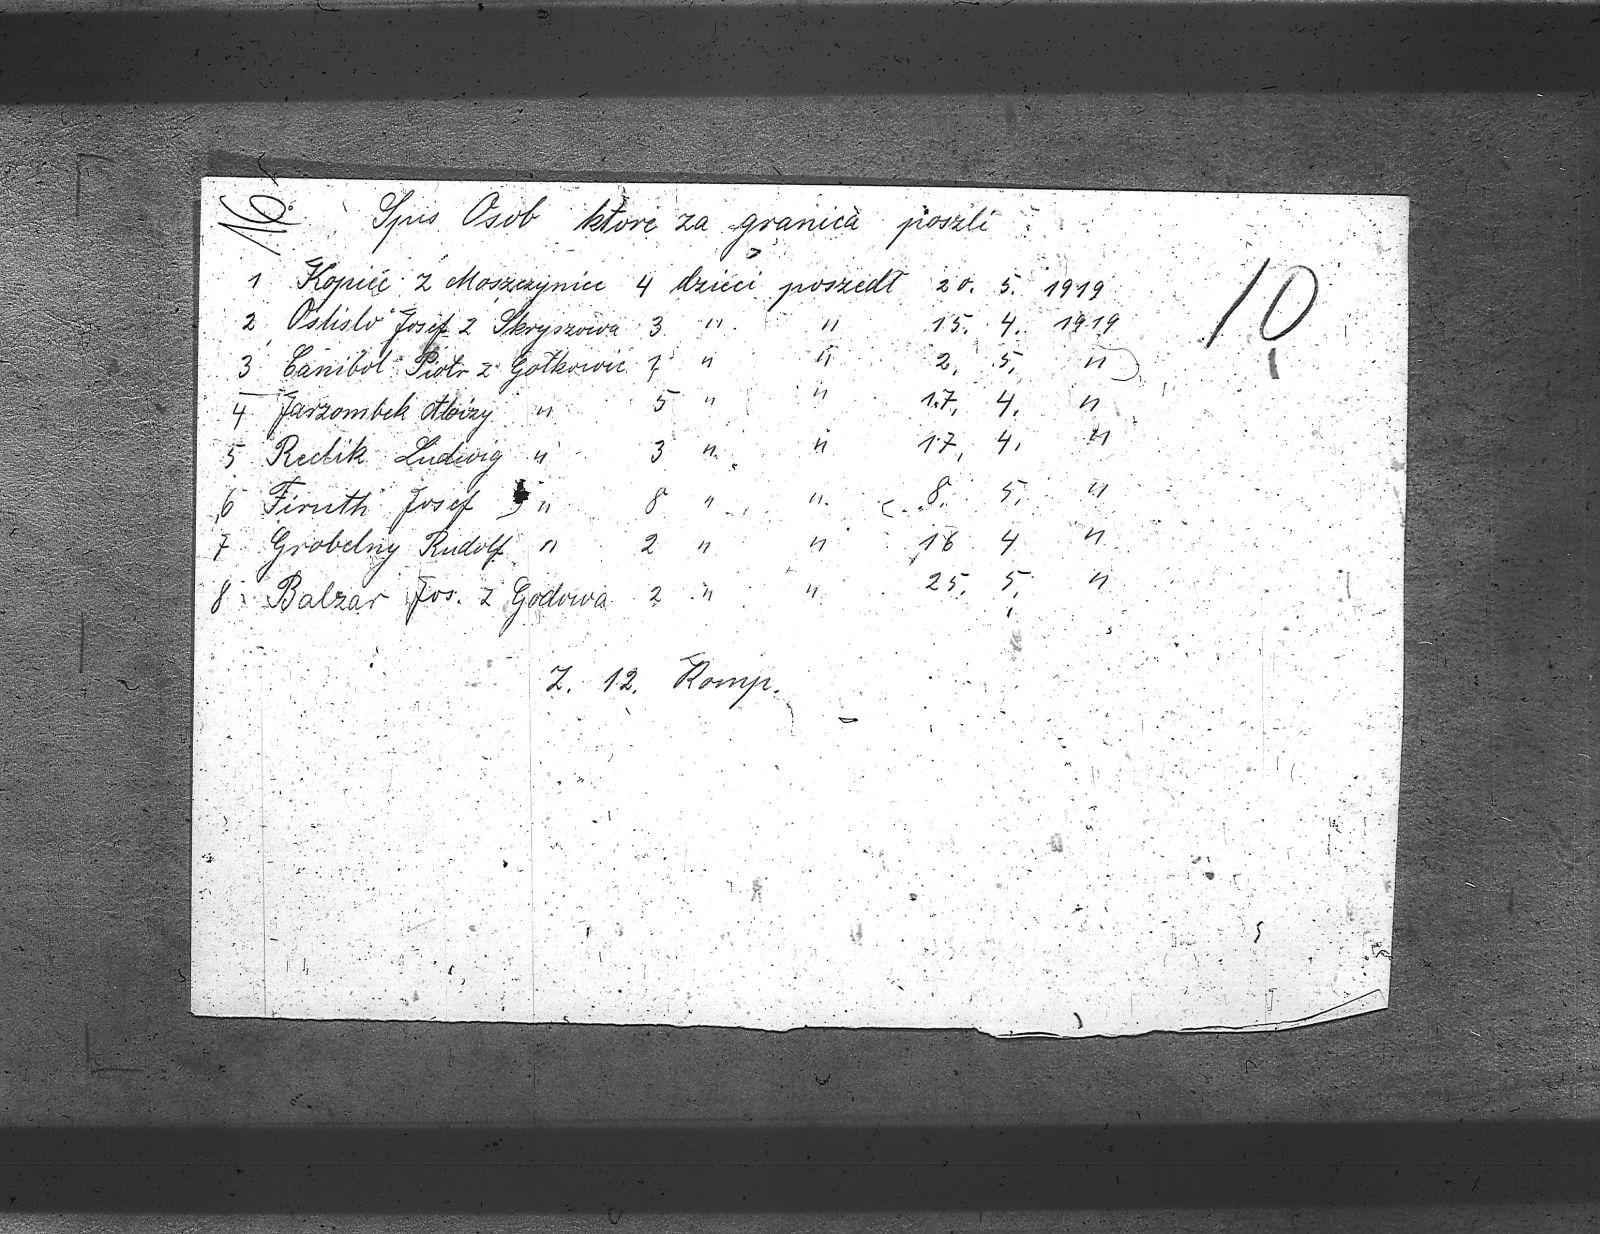 16.
Spis Osob ktore za granica poszli
10
1 Kopiec z Moszczynice 4 dzieci poszedł 20. 5. 1919
2 Oslislo Josef z Skryszowa 3 " " 15. 4. 1919
3 Canibol Piotr z Gołkowic 7 " " 2. 5. "
4 Jarzombek Aloizy " 5 " " 17. 4. "
5 Reclik Ludwig " 3 " " 17. 4. "
6 Firuth Josef " 8 " " 8. 5. "
7 Grobelny Rudolf " 2 " " 16 4 "
8 Balzar Jos. z Godowa 2 " " 25. 5. "
Z. 12. Komp.